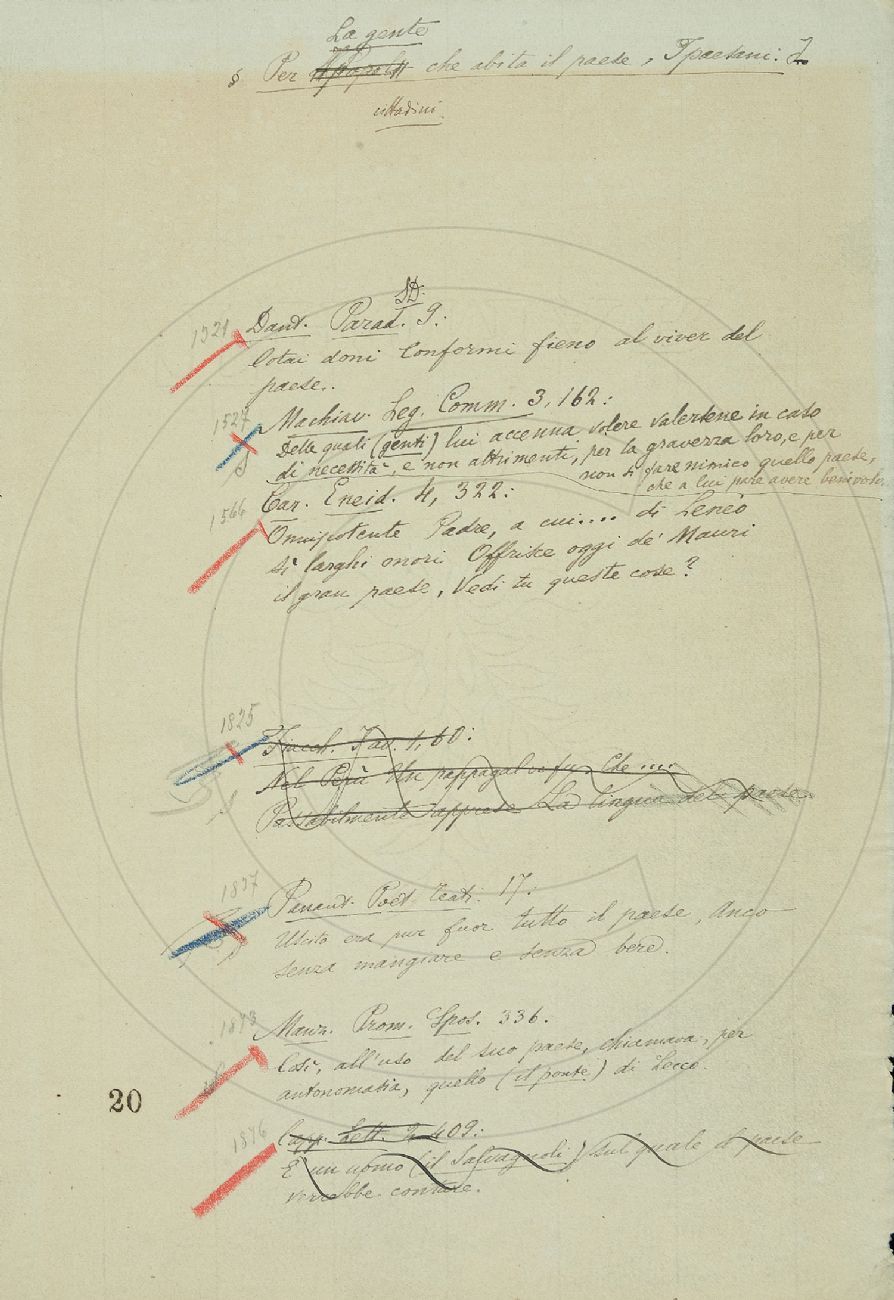 La gente
§ Per il popolo che abita il paese, I paesani: I
cittadini.
SD.
1321 Dant. Parad. 9:
Cotai doni conformi fieno al viver del
paese..
1527 Machiav. Leg. Comm. 3, 162:
Delle quali (genti) lui accenna volere valersene in caso
di necessità, e non altrimenti, per la gravezza loro, e per
non si fare nimico quello paese,
che a lui pare avere benivolo.
1566 Car. Eneid. 4, 322:
Onnipotente Padre, a cui.... di Lenèo
sì larghi onori Offrisce oggi de' Mauri
il gran paese, Vedi tu queste cose?
1825 Fiacch. Fav. 1, 60:
Nel Perù Un pappagal vi fu, Che ....
Passabilmente rapprese La lingua del paese.
1837 Panant. Poet. Teatr. 17:
Uscito era pur fuor tutto il paese, Anco
senza mangiare e senza bere.
1873 Manz. Prom. Spos. 336.
Così, all'uso del suo paese, chiamava, per
antonomasia, quello (il ponte) di Lecco.
20
1876 Capp. Lett. 2, 409:
È un uomo (il Salvagnoli) sul quale il paese
verrebbe contare.